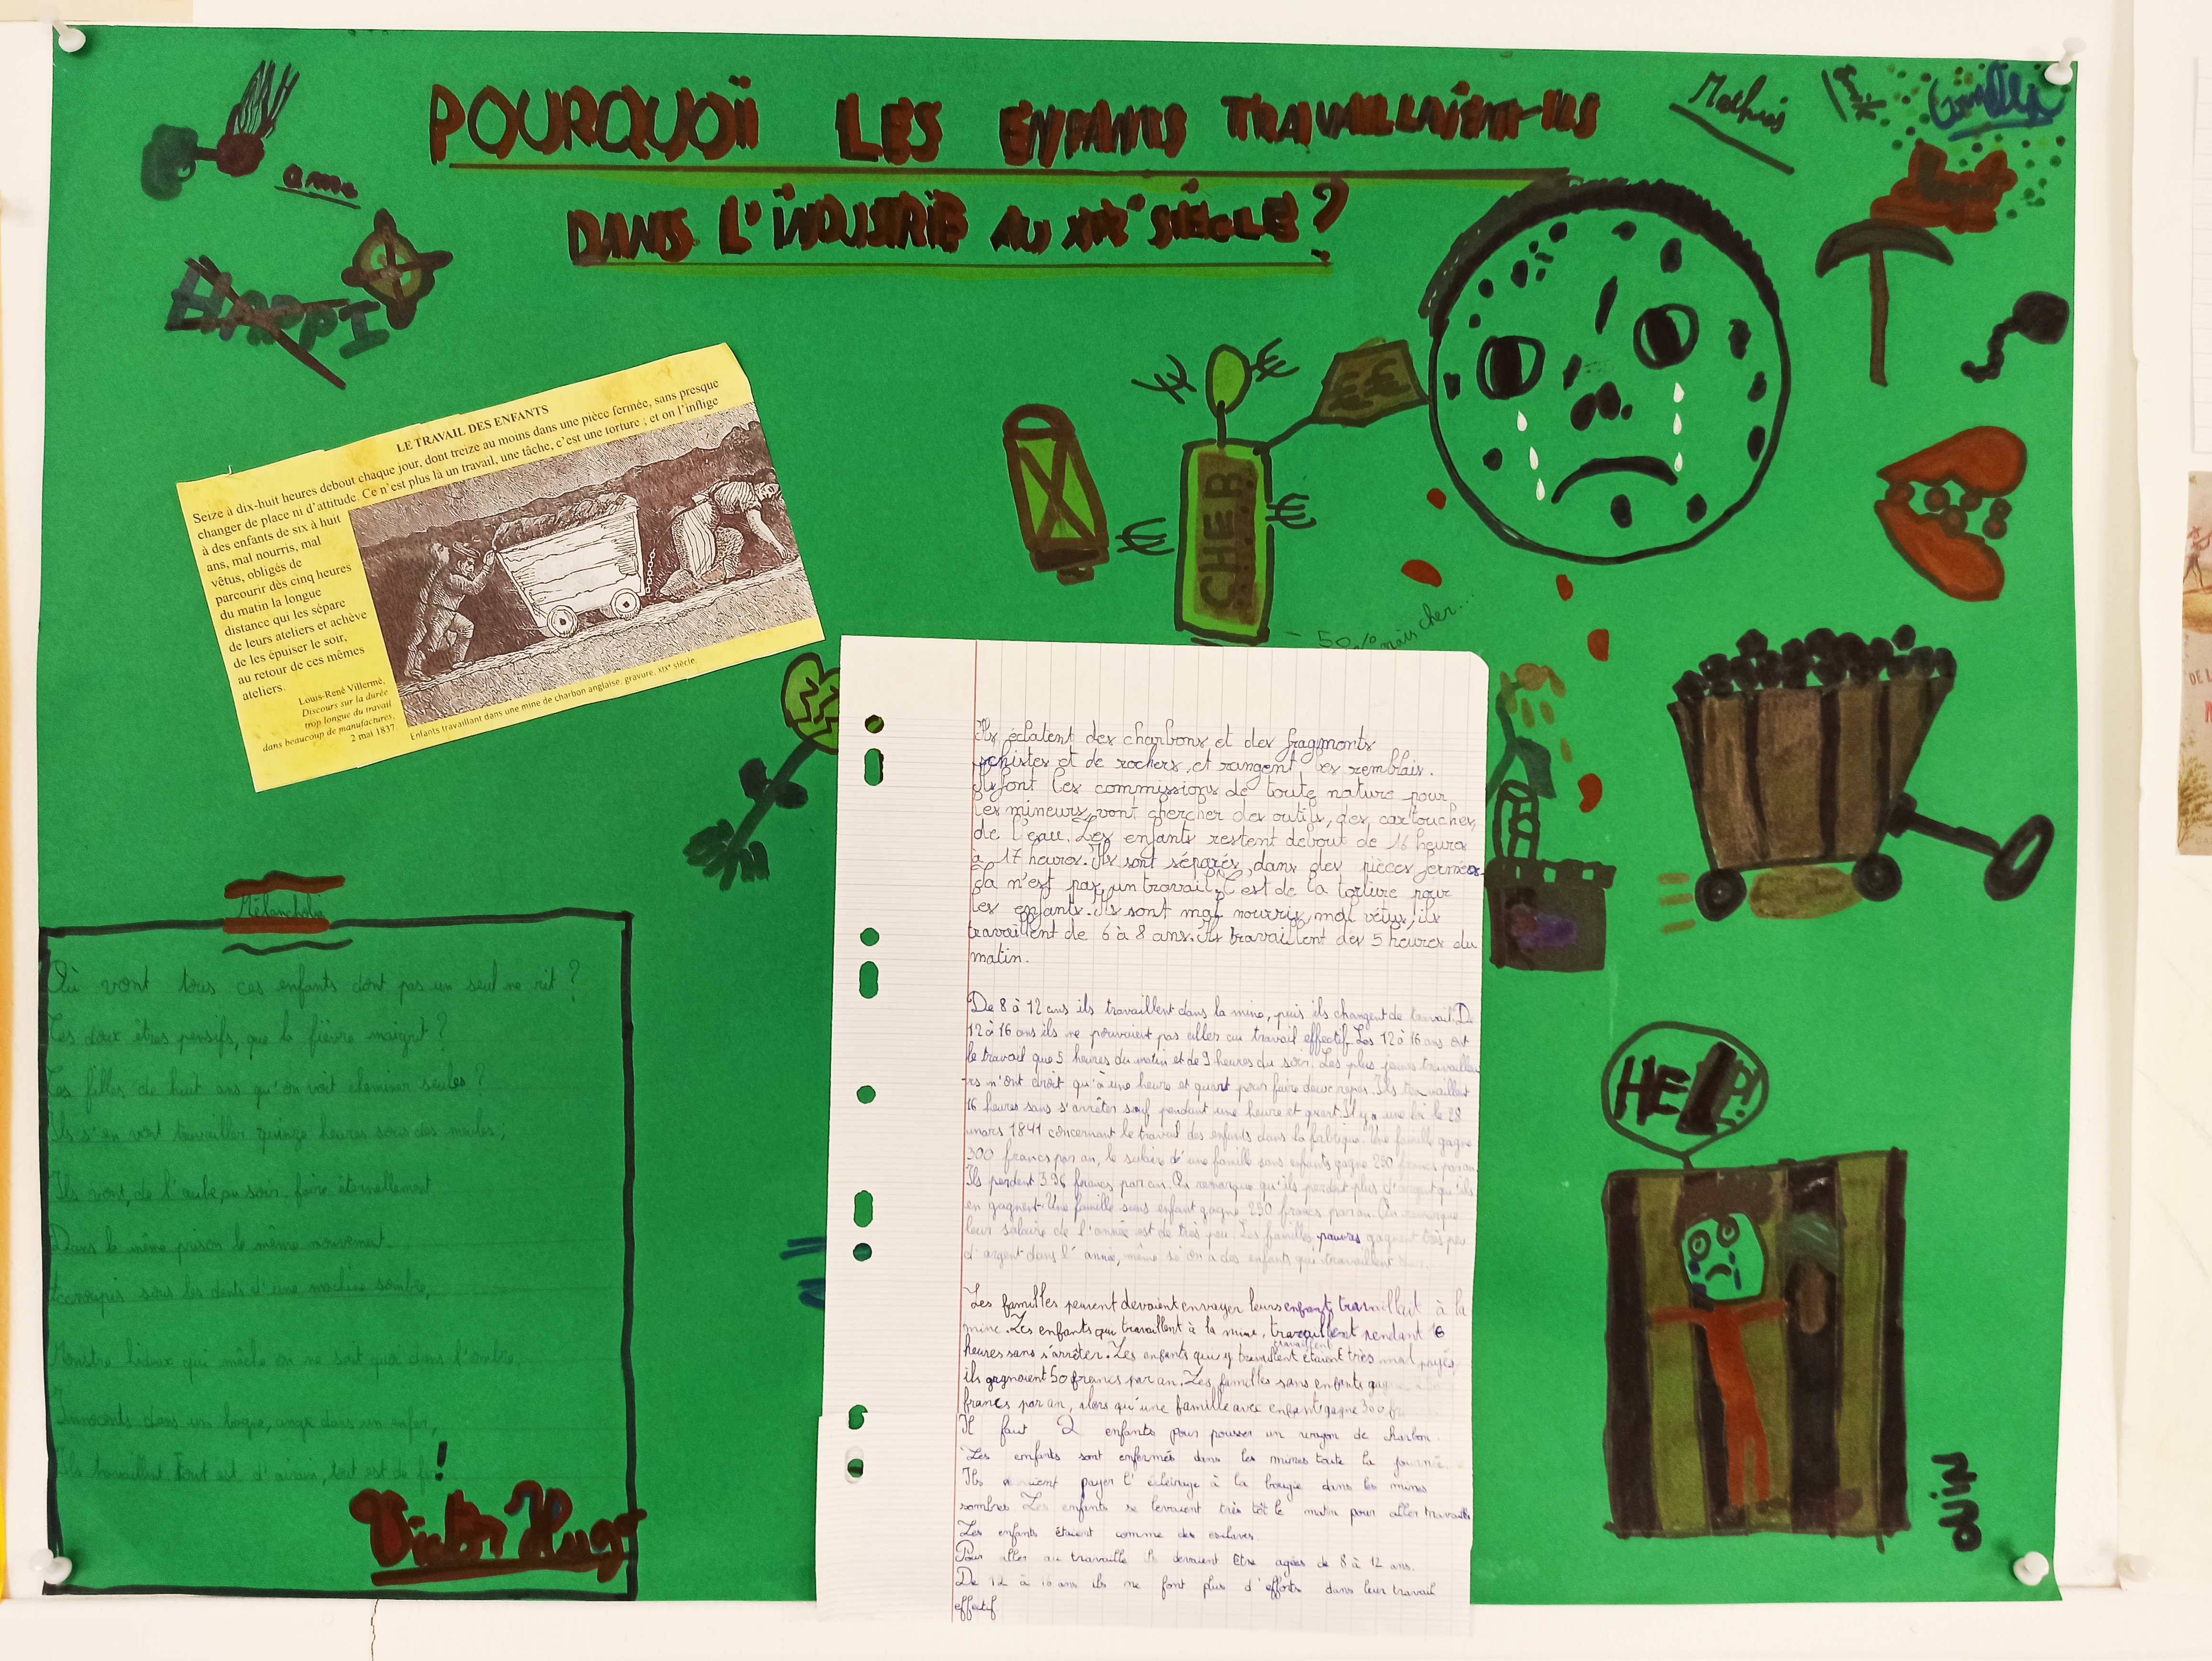 POURQUOÏ LES ENFANTS TRAVAILLAIENT-ILS
DANS L'ÏNDUSTRIE AU XIXe SIÈCLE ?
Mathis
ame
HAPPI
LE TRAVAIL DES ENFANTS
Seize à dix-huit heures debout chaque jour, dont treize au moins dans une pièce fermée, sans presque
changer de place ni d'attitude. Ce n'est plus là un travail, une tâche, c'est une torture ; et on l'inflige
à des enfants de six à huit
ans, mal nourris, mal
vêtus, obligés de
parcourir dès cinq heures
du matin la longue
distance qui les sépare
de leurs ateliers et achève
de les épuiser le soir,
au retour de ces mêmes
ateliers.
Louis-René Villermé,
Discours sur la durée
trop longue du travail
dans beaucoup de manufactures,
2 mai 1837
Enfants travaillant dans une mine de charbon anglaise, gravure, XIXe siècle.
€€
€
€
€
€
CHER
- 50% mais cher...
Mélancholia
Où vont tous ces enfants dont pas un seul ne rit ?
Ces doux êtres pensifs, que la fièvre maigrit ?
Ces filles de huit ans qu'on voit cheminer seules ?
Ils s'en vont travailler quinze heures sous des meules,
Ils vont, de l'aube au soir, faire éternellement
Dans la même prison le même mouvement.
Accroupis sous les dents d'une machine sombre,
Monstre hideux qui mâche on ne sait quoi dans l'ombre,
Innocents dans un bagne, ange dans un enfer,
Ils travaillent Tout est d'airain, tout est de fe !
Victor Hugo
Ils éclatent des charbons et des fragments
schistes et de rochers, et rangent les remblais.
Ils font les commissions de toute nature pour
les mineurs, vont chercher des outils, des cartouches,
de l'eau. Les enfants restent debout de 16 heures
à 17 heures. Ils sont séparés, dans des pièces fermées.
Ça n'est pas un travail, C'est de la torture pour
les enfants. Ils sont mal nourris, mal vêtus, ils
travaillent de 6 à 8 ans. Ils travaillent dès 5 heures du
matin.
De 8 à 12 ans ils travaillent dans la mine, puis ils changent de travail. De
12 à 16 ans ils ne pouvaient pas aller au travail effectif. Les 12 à 16 ans ont
le travail que 5 heures du matin et de 9 heures du soir. Les plus jeunes travailleu
rs n'ont droit qu'à une heure et quart pour faire deux repas. Ils travaillent
16 heures sans s'arrêter sauf pendant une heure et quart. Il y a une loi le 28
mars 1841 concernant le travail des enfants dans la fabrique. Une famille gagne
300 francs par an, le salaire d'une famille sans enfants gagne 250 francs par an
Ils perdent 396 francs par an. On remarque qu'ils perdent plus d'argent qu'ils
en gagnent. Une famille sans enfant gagne 250 francs par an. On remarque
leur salaire de l'année est de très peu. Les familles pauvres gagnent très peu
d'argent dans l'année, même si on a des enfants qui travaillent
Les familles peuvent devaient envoyer leurs enfant travaillait à la
mine. Les enfants qui travaillent à la mine, travaillent pendant 16
heures sans s'arrêter. Les enfants qui y travaillent étaient très mal payés,
ils gagnaient 50 francs par an. Les familles sans enfants
francs par an, alors qu'une famille avec enfants gagne 300
Il faut 2 enfants pour pousser un wagon de charbon.
Les enfants sont enfermés dans les mines toute la
Ils payer l'éclairage à la bougie dans les mines
sombres. Les enfants se levaient très tôt le matin pour aller travailler
Les enfants étaient comme des esclaves.
Pour aller au travaille devaient être agées de 8 à 12 ans.
De 12 à 16 ans ils ne font plus d'efforts dans leur travail
effectif
HELP!